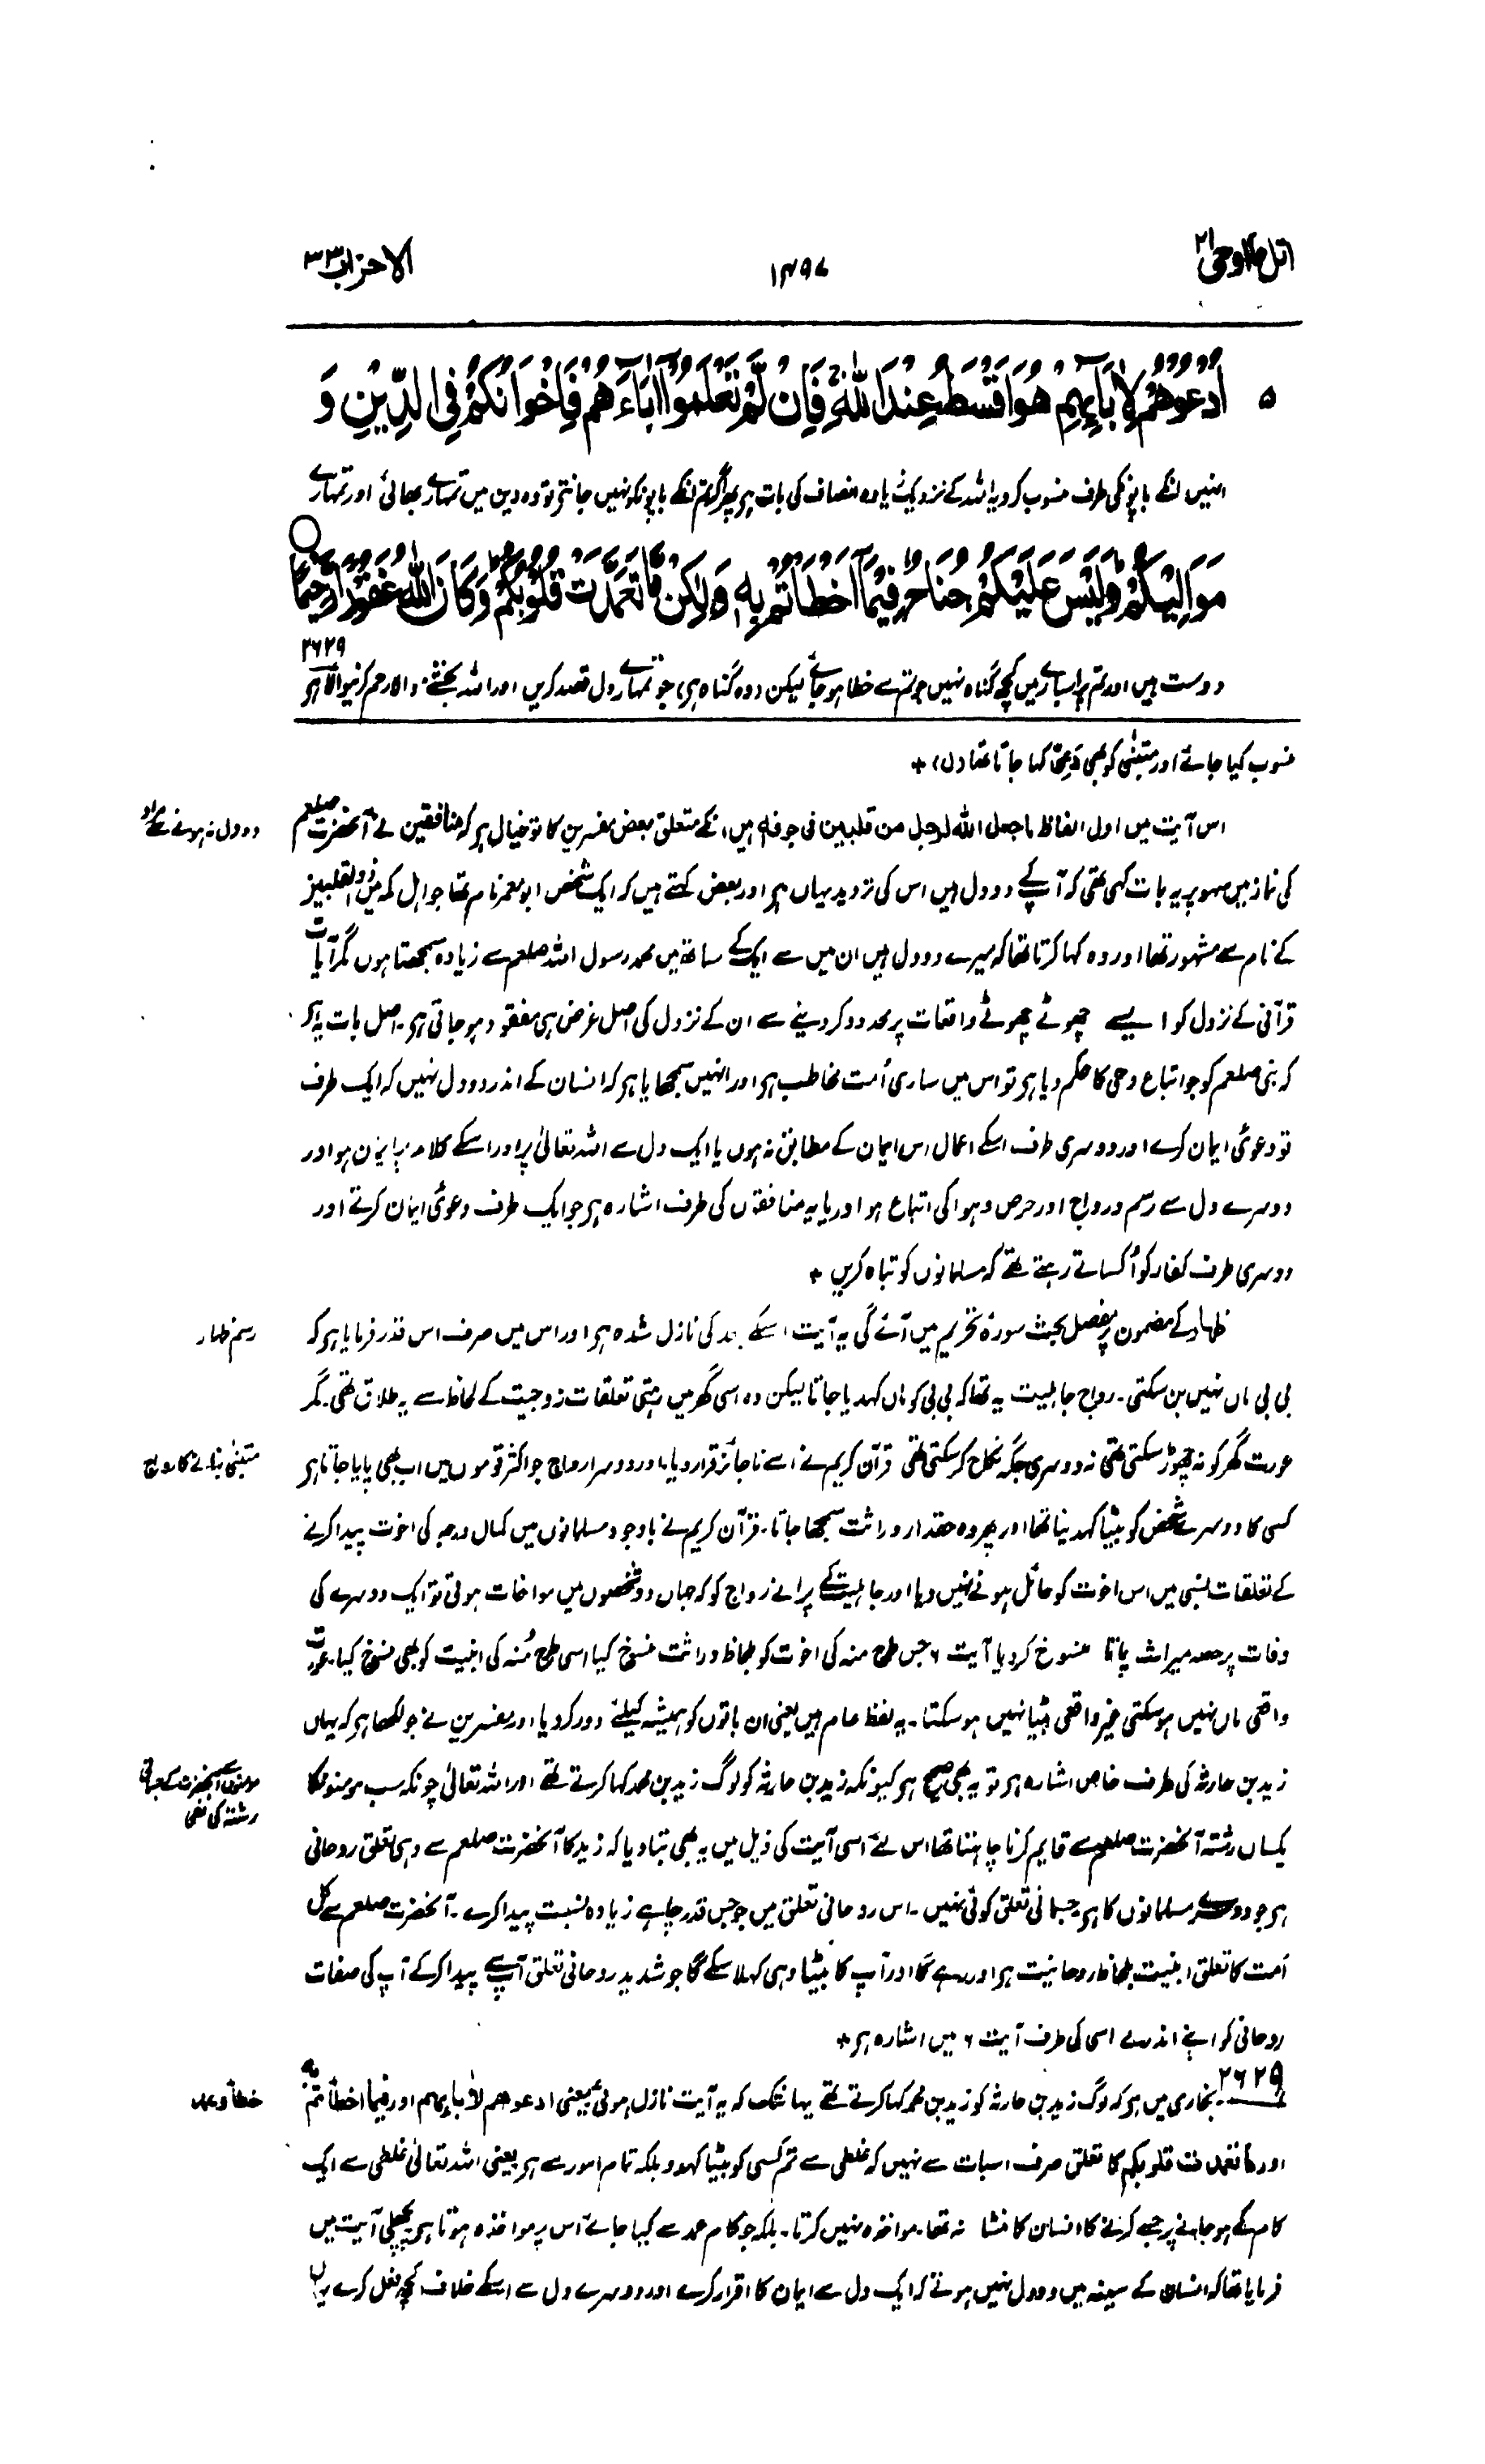 اتل ما اوحی ۲۱
۱۴۹۷
الاحزاب ۳۳
۵ اُدْعُوْهُمْ لِاٰبَآئِهِمْ هُوَ اَقْسَطُ عِنْدَ اللّٰهِ ۚ فَاِنْ لَّمْ تَعْلَمُوْۤا اٰبَآءَهُمْ فَاِخْوَانُكُمْ فِی الدِّیْنِ وَ
انہیں انکے باپوں کی طرف منسوب کرو یہ اللہ کے نزدیک زیادہ انصاف کی بات ہی پھر اگر تم انکے باپونکو نہیں جانتے تو وہ دین میں تمہارے بھائی اور تمہارے
مَوَالِیْكُمْ ؕ وَلَیْسَ عَلَیْكُمْ جُنَاحٌ فِیْمَاۤ اَخْطَاْتُمْ بِهٖ ۙ وَلٰكِنْ مَّا تَعَمَّدَتْ قُلُوْبُكُمْ ؕ وَكَانَ اللّٰهُ غَفُوْرًا رَّحِیْمًا
۲۶۲۹
دوست ہیں اور تم پر اسبارے میں کچھ گناہ نہیں جو تم سے خطا ہو جائے لیکن (وہ گناہ ہی) جو تمہارے دل قصد کریں اور اللہ بخشنے والا رحم کرنیوالا ہی
منسوب کیا جائے اور متبنّٰی کو بھی دَعِیّ کہا جاتا تھا (ل) +
دو دل نہ ہونے سے مراد
اس آیت میں اول الفاظ ماجعل الله لرجل من قلبين فی جوفه ہیں، انکے متعلق بعض مفسرین کا تو خیال ہی کہ منافقین نے آنحضرت صلعم
کی نماز میں سہو پر یہ بات کہی تھی کہ آپکے دو دل ہیں اس کی تردید یہاں ہی اور بعض کہتے ہیں کہ ایک شخص ابو معمر نام تھا جو اہل مکہ میں ذو القلبین
کے نام سے مشہور تھا اور وہ کہا کرتا تھا کہ میرے دو دل ہیں ان میں سے ایک کے ساتھ میں محمد رسول اللہ صلعم سے زیادہ سمجھتا ہوں مگر آیات
قرآنی کے نزول کو ایسے چھوٹے چھوٹے واقعات پر محدود کر دینے سے ان کے نزول کی اصل غرض ہی مفقود ہو جاتی ہی۔ اصل بات یہ ہی
کہ نبی صلعم کو جو اتباع وحی کا حکم دیا ہی تو اس میں ساری اُمت مخاطب ہی اور انہیں سمجھایا ہی کہ انسان کے اندر دو دل نہیں کہ ایک طرف
تو دعویٰ ایمان کرے اور دوسری طرف اسکے اعمال اس ایمان کے مطابق نہ ہوں یا ایک دل سے اللہ تعالیٰ پر اور اسکے کلام پر ایمان ہو اور
دوسرے دل سے رسم و رواج اور حرص و ہوا کی اتباع ہو اور یا یہ منافقوں کی طرف اشارہ ہی جو ایک طرف دعویٰ ایمان کرتے اور
دوسری طرف کفار کو اُکساتے رہتے تھے کہ مسلمانوں کو تباہ کریں +
رسم ظہار
ظہار کے مضمون پر مفصل بحث سورۂ تحریم میں آئے گی یہ آیت اسکے بعد کی نازل شدہ ہی اور اس میں صرف اس قدر فرمایا ہی کہ
بی بی ماں نہیں بن سکتی۔ رواج جاہلیت یہ تھا کہ بی بی کو ماں کہدیا جاتا لیکن وہ اسی گھر میں رہتی تعلقات زوجیت کے لحاظ سے یہ طلاق تھی۔ مگر
متبنّٰی بنانے کا رواج
عورت گھر کو نہ چھوڑ سکتی تھی نہ دوسری جگہ نکاح کر سکتی تھی قرآن کریم نے اسے ناجائز قرار دیا، اور دوسرا رواج جو اکثر قوموں میں اب بھی پایا جاتا ہی
کسی کا دوسرے شخص کو بیٹا کہدینا تھا اور پھر وہ حقدار وراثت سمجھا جاتا۔ قرآن کریم نے باوجود مسلمانوں میں کمال درجہ کی اخوت پیدا کرنے
کے تعلقات نسبی میں اس اخوت کو حائل ہونے نہیں دیا اور جاہلیت کے پرانے رواج کو کہ جہاں دو شخصوں میں مواخات ہوتی تو ایک دوسرے کی
وفات پر حصہ میراث پاتا منسوخ کر دیا آیت ۶ جس طرح منہ کی اخوت کو بلحاظ وراثت منسوخ کیا اسی طرح مُنہ کی ابنیت کو بھی منسوخ کیا۔ عورت
واقعی ماں نہیں ہو سکتی غیر واقعی بیٹا نہیں ہو سکتا۔ یہ لفظ عام ہیں یعنی ان باتوں کو ہمیشہ کیلئے دور کر دیا، اور مفسرین نے جو لکھا ہی کہ یہاں
مومنوں سے آنحضرت کے جسمانی رشتہ کی نفی
زید بن حارثہ کی طرف خاص اشارہ ہی تو یہ بھی صحیح ہی کیونکہ زید بن حارثہ کو لوگ زید بن محمد کہا کرتے تھے اور اللہ تعالیٰ چونکہ سب مومنونکا
یکساں رشتہ آنحضرت صلعم سے قایم کرنا چاہتا تھا اس لئے اسی آیت کی ذیل میں یہ بھی بتا دیا کہ زید کا آنحضرت صلعم سے وہی تعلق روحانی
ہی جو دوسرے مسلمانوں کا ہی جسمانی تعلق کوئی نہیں۔ اس روحانی تعلق میں جو جس قدر چاہے زیادہ نسبت پیدا کرے۔ آنحضرت صلعم سے کل
اُمت کا تعلق ابنیت بلحاظ روحانیت ہی اور رہے گا اور آپ کا بیٹا وہی کہلا سکے گا جو شدید روحانی تعلق آپ سے پیدا کرکے آپ کی صفات
روحانی کو اپنے اندر لے اسی کی طرف آیت ۶ میں اشارہ ہی +
خطأ و عمد
۲۶۲۹۔ بخاری میں ہی کہ لوگ زید بن حارثہ کو زید بن محمد کہا کرتے تھے یہانتک کہ یہ آیت نازل ہوئی یعنی ادعوهم لاٰبائهم اور فیما اخطأتم به
اور ما تعمدت قلوبکم کا تعلق صرف اسبات سے نہیں کہ غلطی سے تم کسی کو بیٹا کہدو بلکہ تمام امور سے ہی یعنی اللہ تعالیٰ غلطی سے ایک
کام کے ہو جانے پر جسے کرنے کا انسان کا منشا نہ تھا۔ مواخذہ نہیں کرتا۔ بلکہ جو کام عمد سے کیا جائے اس پر مواخذہ ہوتا ہی پچھلی آیت میں
فرمایا تھا کہ انسان کے سینہ میں دو دل نہیں ہوتے کہ ایک دل سے ایمان کا اقرار کرے اور دوسرے دل سے اسکے خلاف کچھ فعل کرے